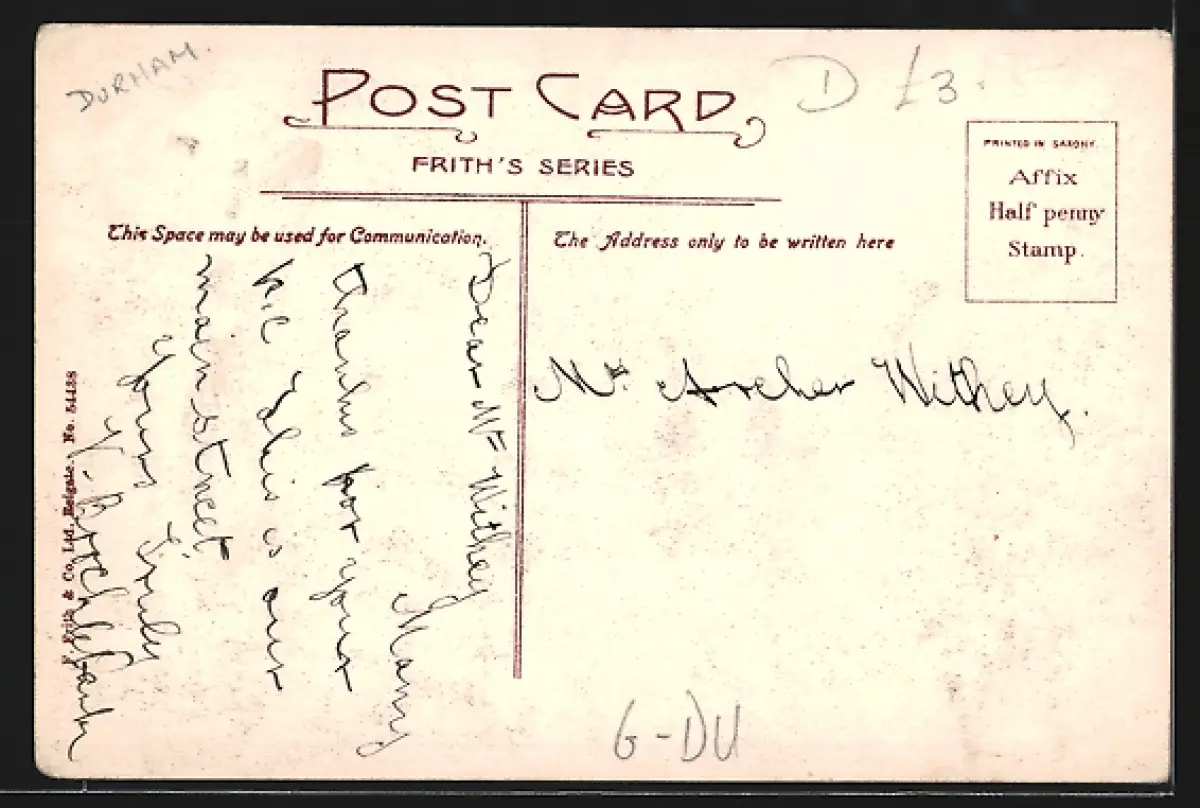 DURHAM.
D £3.
POST CARD
FRITH'S SERIES
PRINTED IN SAXONY.
Affix
Half penny
Stamp.
This Space may be used for Communication.
The Address only to be written here
Dear Mr Withey
Many
thanks for your
p.c. This is our
main street
yours truly
Mr. Archer Withey.
Frith & Co., Ltd. Reigate. No. 54438
G-DU